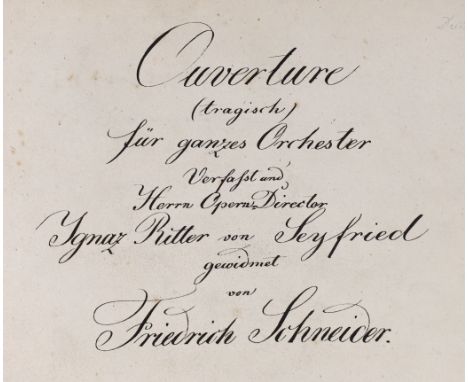 Ouverture
(tragisch)
für ganzes Orchester
Verfaßt und
Herrn Opern-Director
Ignaz Ritter von Seyfried
gewidmet
von
Friedrich Schneider.